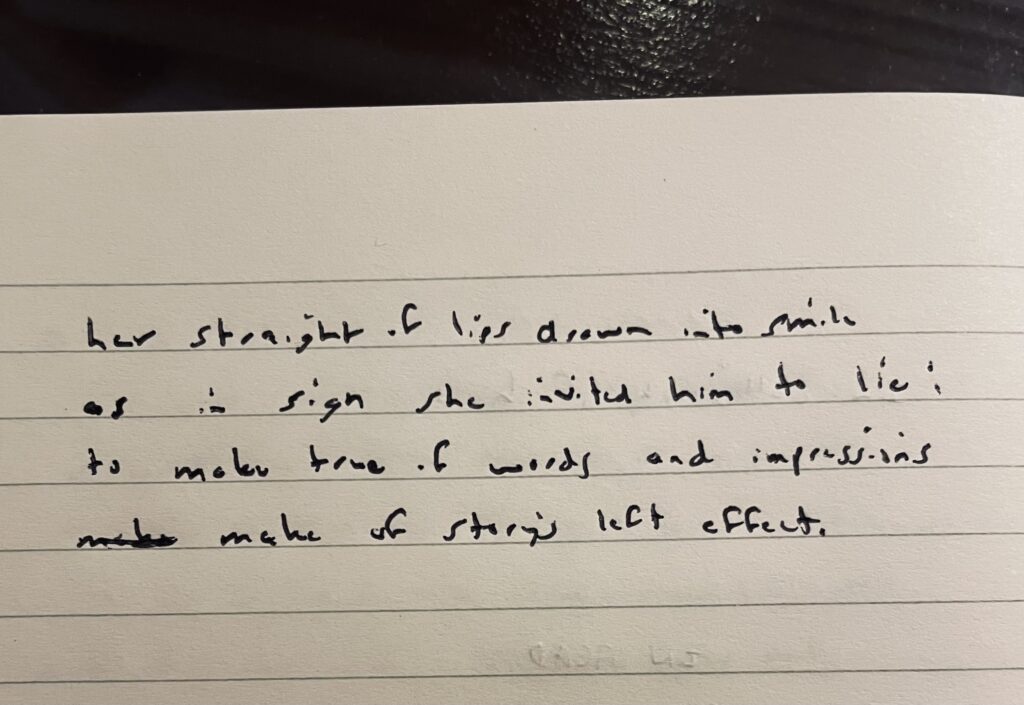 her straight of lips drawn into smile
as in sign she invited him to lie;
to make true of words and impressions
make of story's left effect.